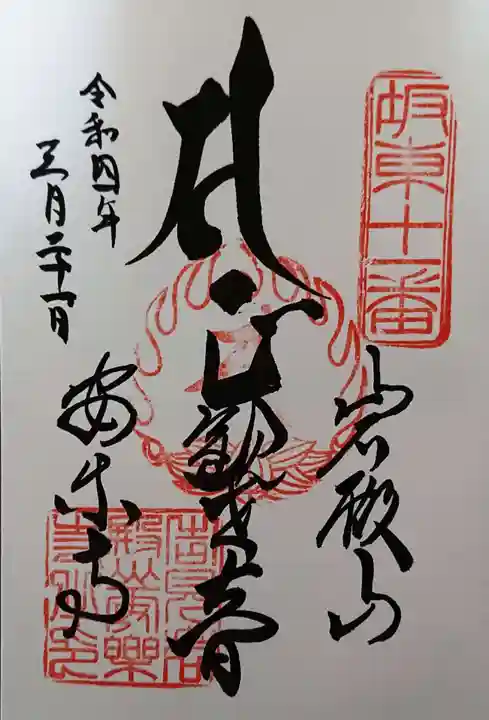 坂東十一番
岩殿山
観世音
安楽寺
令和四年
三月二十一日